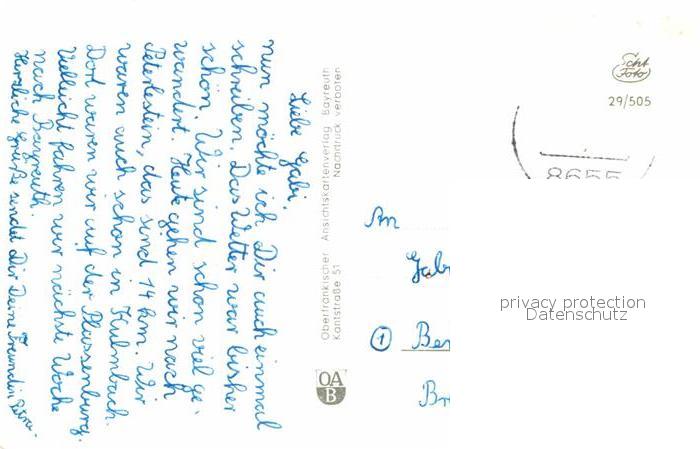 Liebe Gabi,
nun möchte ich Dir auch einmal
schreiben. Das Wetter war bisher
schön. Wir sind schon viel ge-
wandert. Heute gehen wir nach
Peterlestein, das sind 14 km. Wir
waren auch schon in Kulmbach.
Dort waren wir auf der Plassenburg.
Vielleicht fahren wir nächste Woche
nach Bayreuth.
Herzliche Grüße sendet Dir Deine Freundin Petra.
Oberfränkischer Ansichtskartenverlag Bayreuth
Kantstraße 51 Nachdruck verboten
OA
B
Echt
Foto
29/505
8655
An
Gabi
① Ber
Br
privacy protection
Datenschutz